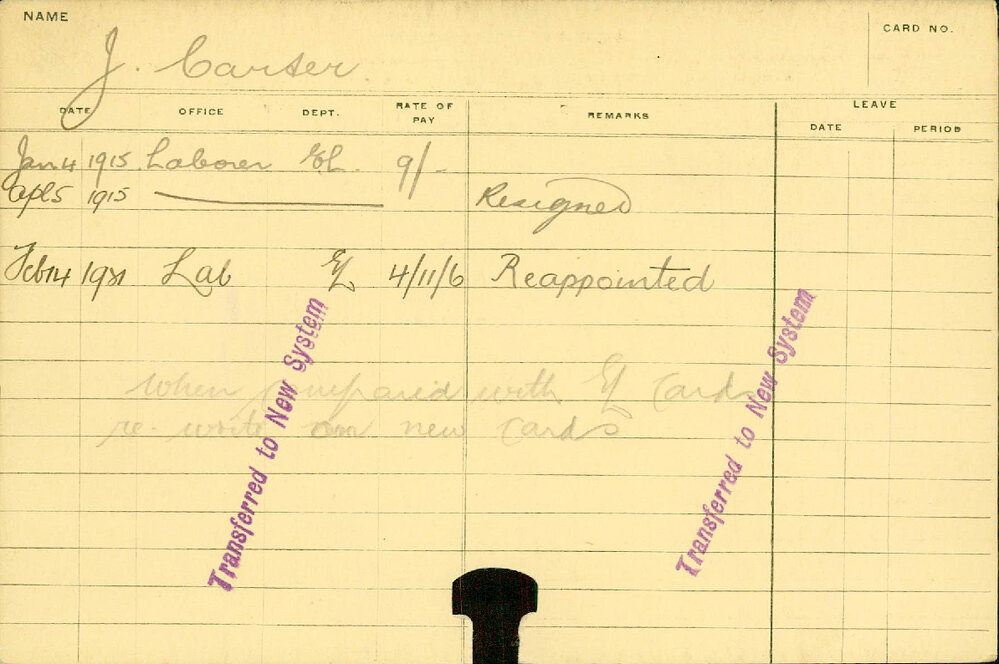 NAME
CARD NO.
J. Carter.
DATE OFFICE DEPT. RATE OF PAY REMARKS LEAVE
DATE PERIOD
Jan 4 1915 Laborer EL. 9/-
Apl 5 1915 Resigned
Feb 14 1921 Lab EL 4/11/6 Reappointed
When compared with EL Cards
re-write on new Cards
Transferred to New System
Transferred to New System